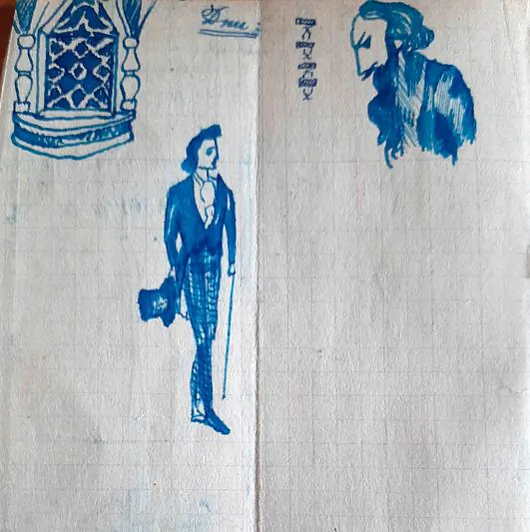 Дни: